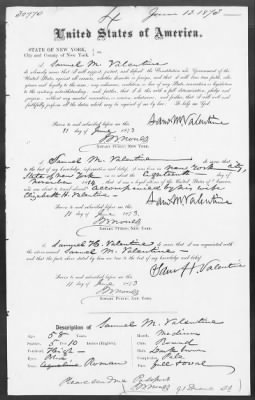 30770
June 12 1873
United States of America.
STATE OF NEW YORK,
City and County of New York,
Samuel M. Valentine
do solemnly swear that I will support, protect, and defend the Constitution and Government of the
United States against all enemies, whether domestic or foreign; and that I will bear true faith, allegiance
and loyalty to the same, any ordinance, resolution or law of any State convention or legislature to
the contrary notwithstanding; and further, that I do this with a full determination, pledge and
purpose, without any mental reservation or evasion whatsoever; and further, that I will well and
faithfully perform all the duties which may be required of me by law. So help me God.
Sam M Valentine
Sworn to and subscribed before me this
11 day of June 1873
NOTARY PUBLIC, NEW YORK.
Samuel M. Valentine do swear that
to the best of my knowledge information and belief, I was born in New York City
State of New York on or about the Eighteenth day of
and that I am a
Citizen of the United States of America
and am about to travel abroad accompanied by his wife
Elizabeth H. Valentine
Sam M Valentine
Sworn to and subscribed before me this
11 day of June 1873.
NOTARY PUBLIC, NEW YORK.
Samuel H. Valentine do swear that I am acquainted with
the above named Samuel M. Valentine
and that the facts above stated by him are true to the best of my knowledge and belief.
Sam H Valentine
Sworn to and subscribed before me this
11 day of June 1873
NOTARY PUBLIC, NEW YORK.
Description of Samuel M. Valentine
Age, 58 Mouth, Medium
Stature, 5 feet 10 inches (English) Chin, Round
Forehead, High Hair, Dark brown
Eyes, Complexion, Pale
Nose, Roman Face, Full & oval
Please send me Passport
91 Duane St